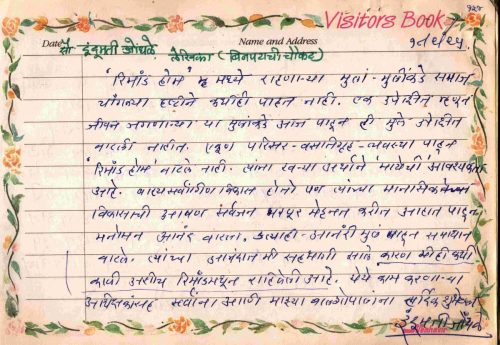 Visitors Book
Date सौ. इंदूमती जोंधळे Name and Address
लेखिका (बिनपटाची चौकट)
'रिमांड होम' मध्ये राहणाऱ्या मुलां-मुलींकडे समाज
चांगल्या दृष्टीने कधीही पाहत नाही. एक उपेक्षित म्हणून
जीवन जगणाऱ्या या मुलांकडे आज पाहून ही मुले उपेक्षित
वाटली नाहीत. एकूण परिसर-वसतिगृह-व्यवस्था पाहून
'रिमांड होम' वाटले नाही. त्यांना खऱ्या अर्थाने 'मायेची' आवश्यकता
आहे. बाह्य सर्वांगीण विकास होतो पण त्यांच्या मानसिक
विकासाची आपण सर्वजण भरपूर मेहनत करीत आहात पाहून
मनोमन आनंद वाटला. आनंदी मुलं पाहून समाधान
वाटले. त्यांच्या आनंदात मी सहभागी झाले कारण मीही कधी
काळी अशीच रिमांडमधून राहिलेली आहे. येथे काम करणाऱ्या
सर्वांना आणि माझ्या बालगोपालांना हार्दिक शुभेच्छा
इंदूमती जोंधळे